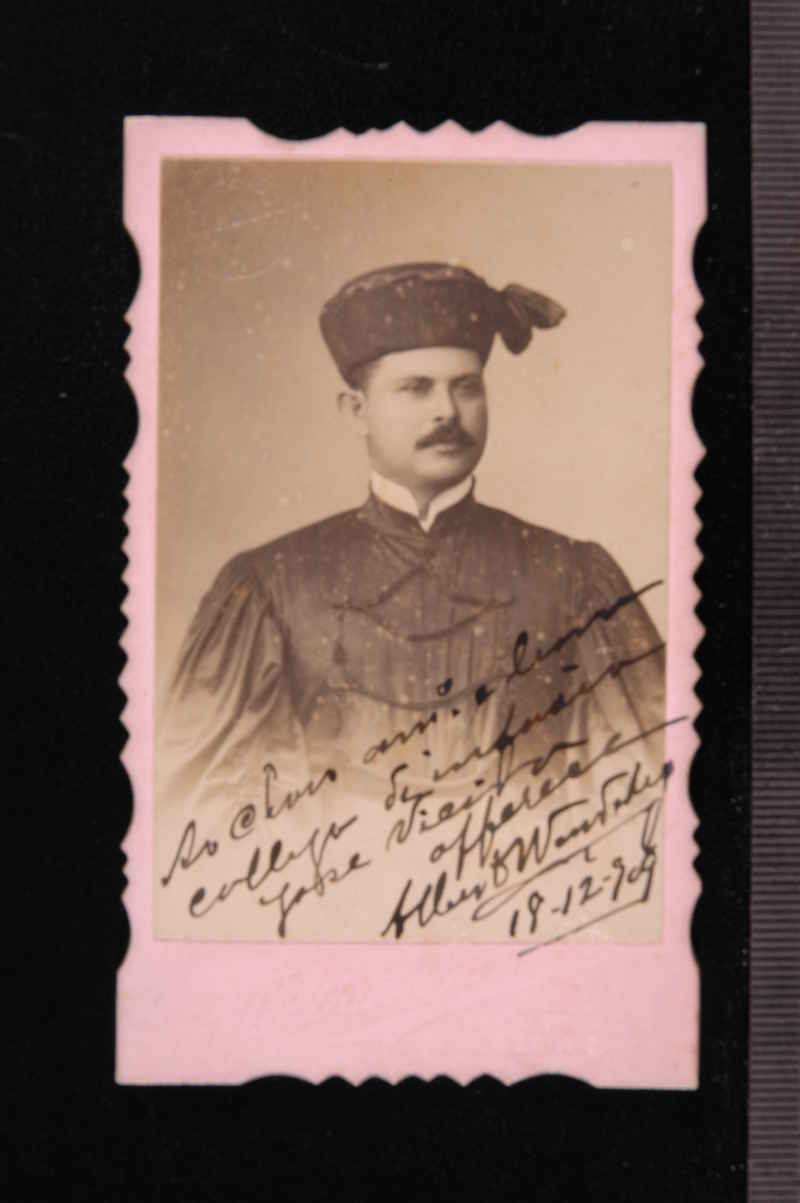 Ao Charo am.º e
collega de infancia
José Vieira
offerece
Alberto Wand
18-12-909